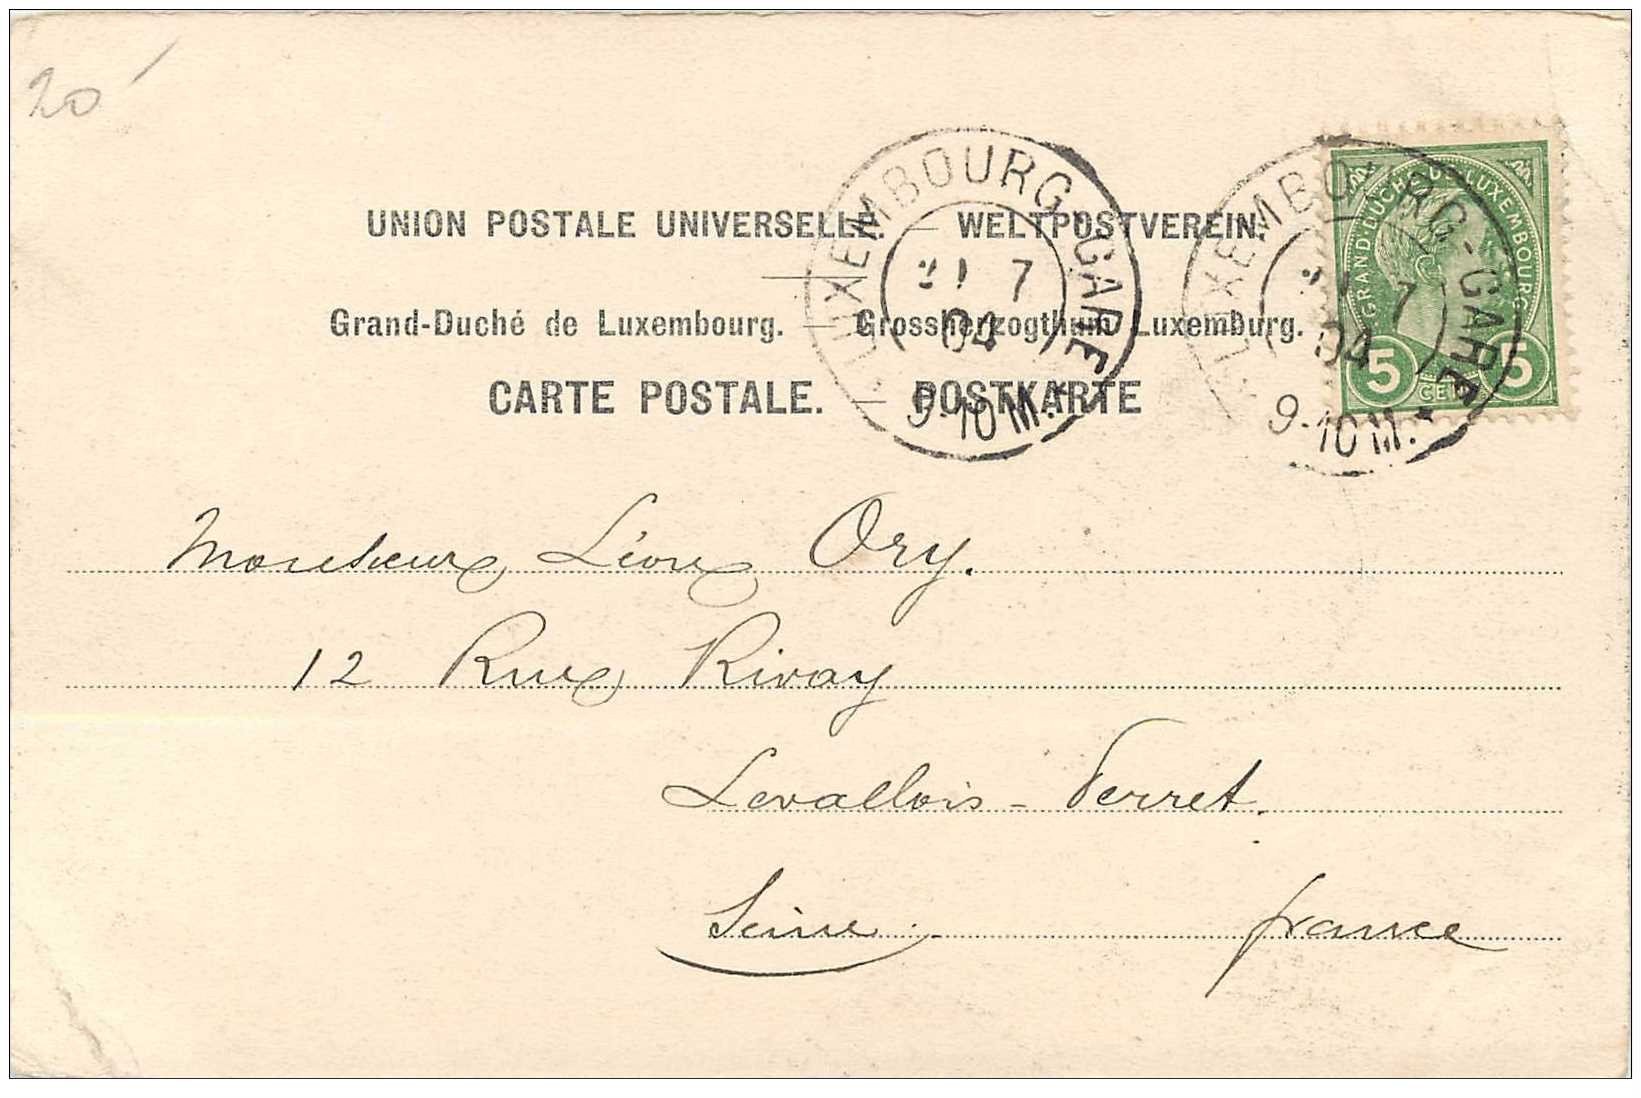 20
UNION POSTALE UNIVERSELLE. — WELTPOSTVEREIN.
Grand-Duché de Luxembourg. — Grossherzogthum Luxemburg.
CARTE POSTALE. — POSTKARTE
LUXEMBOURG-GARE
21 7
04
9-10 M.
LUXEMBOURG-GARE
21 7
04
9-10 M.
GRAND-DUCHÉ DE LUXEMBOURG
5 CENT 5
Monsieur Léon Ory.
12 Rue Rivay
Levallois-Perret.
Seine. France